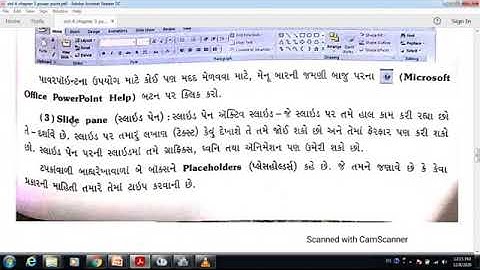 std 6 chapter 3 power point.pdf - Adobe Acrobat Reader DC
પાવરપૉઇન્ટના ઉપયોગ માટે કોઈ પણ મદદ મેળવવા માટે, મેનૂ બારની જમણી બાજુ પરના (Microsoft
Office PowerPoint Help) બટન પર ક્લિક કરો.
(3) Slide pane (સ્લાઇડ પેન) : સ્લાઇડ પેન ઍક્ટિવ સ્લાઇડ – જે સ્લાઇડ પર તમે હાલ કામ કરી રહ્યા છો
તે – દર્શાવે છે. સ્લાઇડ પર તમારું લખાણ (ટેક્સ્ટ) કેવું દેખાશે તે તમે જોઈ શકો છો અને તેમાં ફેરફાર પણ કરી શકો
છો. સ્લાઇડ પેન પરની સ્લાઇડમાં તમે ગ્રાફિક્સ, ધ્વનિ તથા ઍનિમેશન પણ ઉમેરી શકો છો.
ટપકાંવાળી બાહ્યરેખાવાળાં બે બૉક્સને Placeholders (પ્લેસહોલ્ડર્સ) કહે છે. જે તમને જણાવે છે કે કેવા
પ્રકારની માહિતી તમારે તેમાં ટાઇપ કરવાની છે.
Scanned with CamScanner